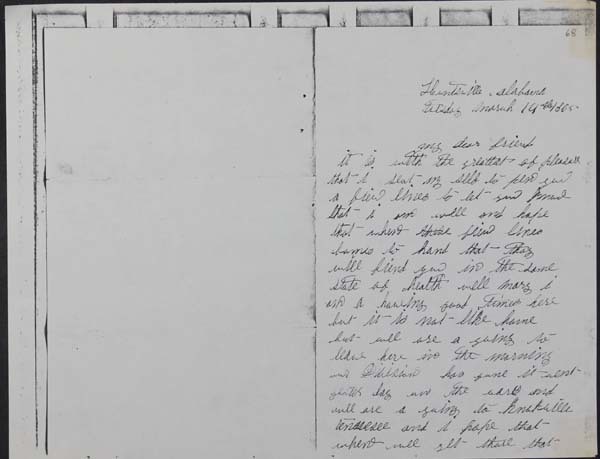 68
Huntsville, Alabama
March 14th 1865
my dear friend
it is with the greattest of pleasure
that i seat my self to pen you
a fiew lines to let you
that i am well and hope
that when these fiew lines
comes to hand that they
will fiend you in the same
state of health well mary i
am a having good times here
but it is not like home
but well are a going to
leave here in the morning
our Division has gone it went
yester day on the cars and
will are a going to knoxville
tennessee and i hope that
when well get thare that